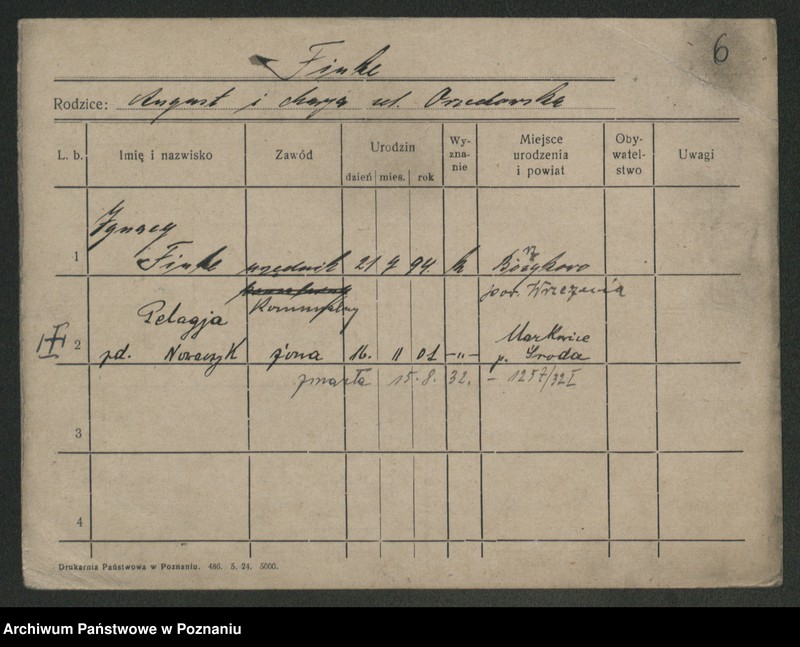 6
Finke
Rodzice: August i Marja ul. Orzedowska
L. b.
Imię i nazwisko
Zawód
Urodzin
dzień
mies.
rok
Wy-
zna-
nie
Miejsce
urodzenia
i powiat
Oby-
watel-
stwo
Uwagi
Ignacy
1 Finke urzędnik 21 7 94. k
komunalny
pow. Września
Pelagja
Markowice
2 pd. Nowaczyk żona 16. 11 01 —"— p. Środa
zmarła 15. 8. 32. – 1257/32 I
3
4
Drukarnia Państwowa w Poznaniu. 486. 5. 24. 5000.
Archiwum Państwowe w Poznaniu